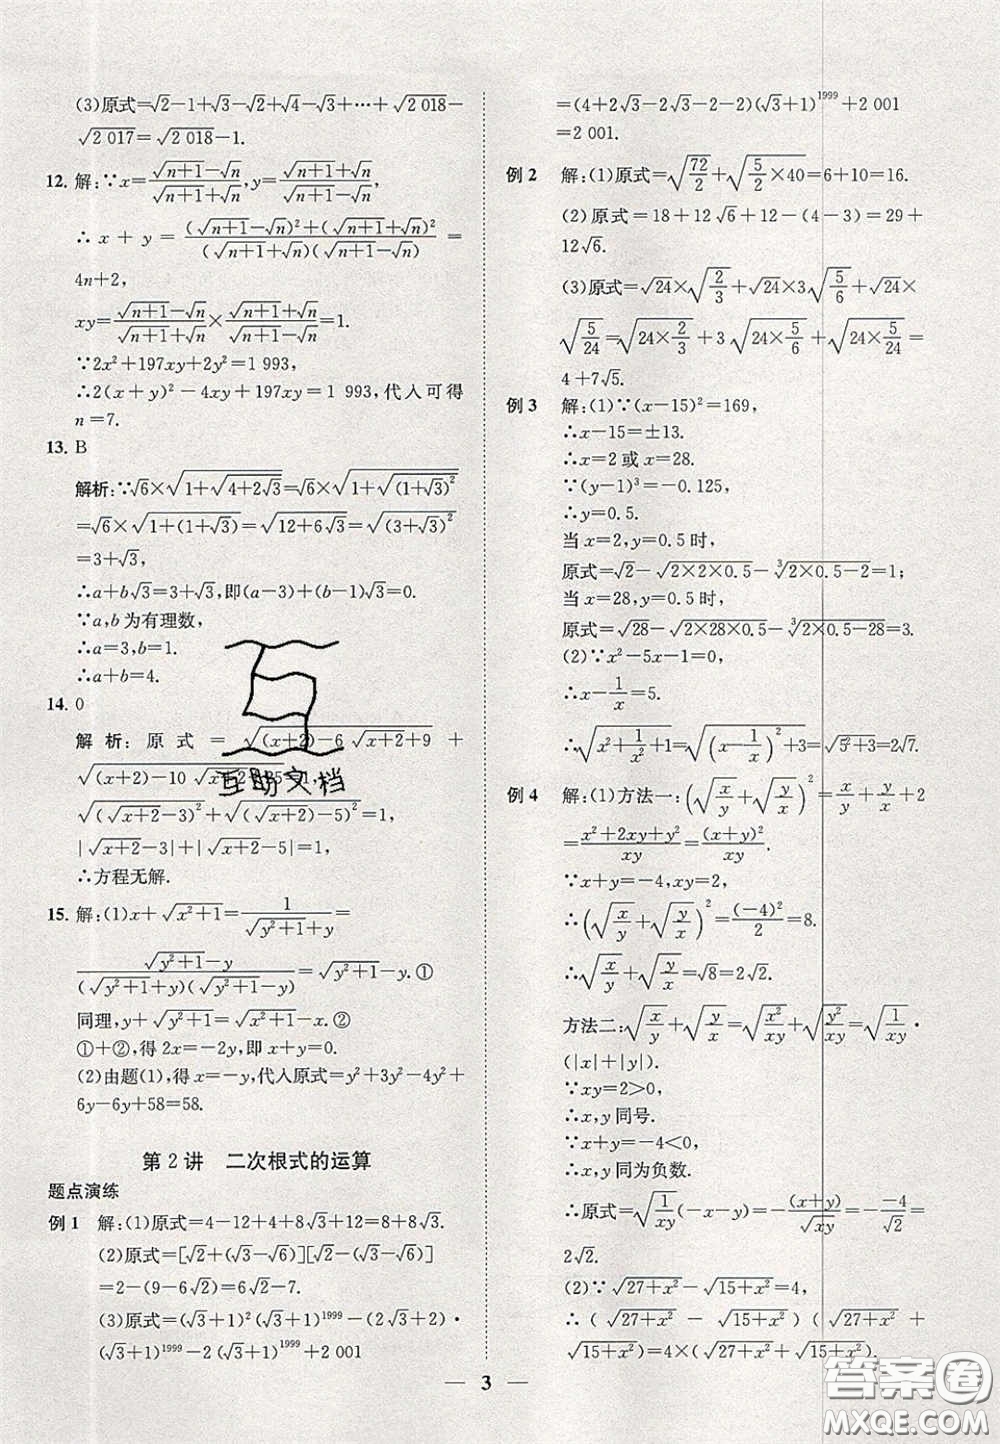 (3)原式=√2-1+√3-√2+√4-√3+…+√(2 018)-
√(2 017)=√(2 018)-1.
12. 解:∵x=(√(n+1)-√n)/(√(n+1)+√n),y=(√(n+1)+√n)/(√(n+1)-√n),
∴ x + y = ((√(n+1)-√n)²+(√(n+1)+√n)²)/((√(n+1)+√n)(√(n+1)-√n)) =
4n+2,
xy=(√(n+1)-√n)/(√(n+1)+√n)×(√(n+1)+√n)/(√(n+1)-√n)=1.
∵2x²+197xy+2y²=1 993,
∴2(x+y)²-4xy+197xy=1 993,代入可得
n=7.
13. B
解析:∵√6×√(1+√(4+2√3))=√6×√(1+√((1+√3)²))
=√6×√(1+(1+√3))=√(12+6√3)=√((3+√3)²)
=3+√3,
∴a+b√3=3+√3,即(a-3)+(b-1)√3=0.
∵a,b为有理数,
∴a=3,b=1.
∴a+b=4.
14. 0
解析:原式=√((x+2)-6√(x+2)+9) +
√((x+2)-10√(x+2)+25)=1,
√((√(x+2)-3)²)+√((√(x+2)-5)²)=1,
|√(x+2)-3|+|√(x+2)-5|=1,
∴方程无解.
15. 解:(1)x+√(x²+1)=1/(√(y²+1)+y)=
(√(y²+1)-y)/((√(y²+1)+y)(√(y²+1)-y))=√(y²+1)-y.①
同理,y+√(y²+1)=√(x²+1)-x.②
①+②,得2x=-2y,即x=-y.
(2)由题(1),得x=-y,代入原式=y²+3y²-4y²+
6y-6y+58=58.
第2讲 二次根式的运算
题点演练
例1 解:(1)原式=4-12+4+8√3+12=8+8√3.
(2)原式=[√2+(√3-√6)][√2-(√3-√6)]
=2-(9-6√2)=6√2-7.
(3)原式=(√3+1)²(√3+1)¹⁹⁹⁹-2(√3+1)·
(√3+1)¹⁹⁹⁹-2(√3+1)¹⁹⁹⁹+2 001
=(4+2√3-2√3-2-2)(√3+1)¹⁹⁹⁹+2 001
=2 001.
例2 解:(1)原式=√(72/2)+√(5/2×40)=6+10=16.
(2)原式=18+12√6+12-(4-3)=29+
12√6.
(3)原式=√24×√(2/3)+√24×3√(5/6)+√24×
√(5/24)=√(24×2/3)+3√(24×5/6)+√(24×5/24)=
4+7√5.
例3 解:(1)∵(x-15)²=169,
∴x-15=±13.
∴x=2或x=28.
∵(y-1)³=-0.125,
∴y=0.5.
当x=2,y=0.5时,
原式=√2-√(2×2×0.5)-³√(2×0.5-2)=1;
当x=28,y=0.5时,
原式=√28-√(2×28×0.5)-³√(2×0.5-28)=3.
(2)∵x²-5x-1=0,
∴x-1/x=5.
∴√(x²+1/x²+1)=√((x-1/x)²+3)=√(5²+3)=2√7.
例4 解:(1)方法一:(√(x/y)+√(y/x))²=x/y+y/x+2
=(x²+2xy+y²)/xy=(x+y)²/xy.
∵x+y=-4,xy=2,
∴(√(x/y)+√(y/x))²=(-4)²/2=8.
∴√(x/y)+√(y/x)=√8=2√2.
方法二:√(x/y)+√(y/x)=√(x²/xy)+√(y²/xy)=√(1/xy)·
(|x|+|y|).
∵xy=2>0,
∴x,y同号.
∵x+y=-4<0,
∴x,y同为负数.
∴原式=√(1/xy)(-x-y)=-(x+y)/√(xy)=-(-4)/√2=
2√2.
(2)∵√(27+x²)-√(15+x²)=4,
∴(√(27+x²) - √(15+x²))(√(27+x²) +
√(15+x²))=4×(√(27+x²)+√(15+x²)),
3
互助文档
答案圈
MXQE.COM